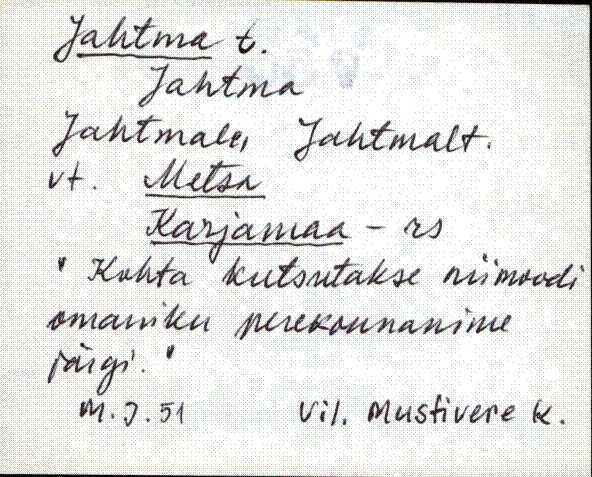 Jahtma t.
Jahtma
Jahtmale, Jahtmalt.
vt. Metsa
Karjamaa - rs
"Kohta kutsutakse niimoodi
omaniku perekonnanime
järgi."
M.J.51 Vil. Mustivere k.